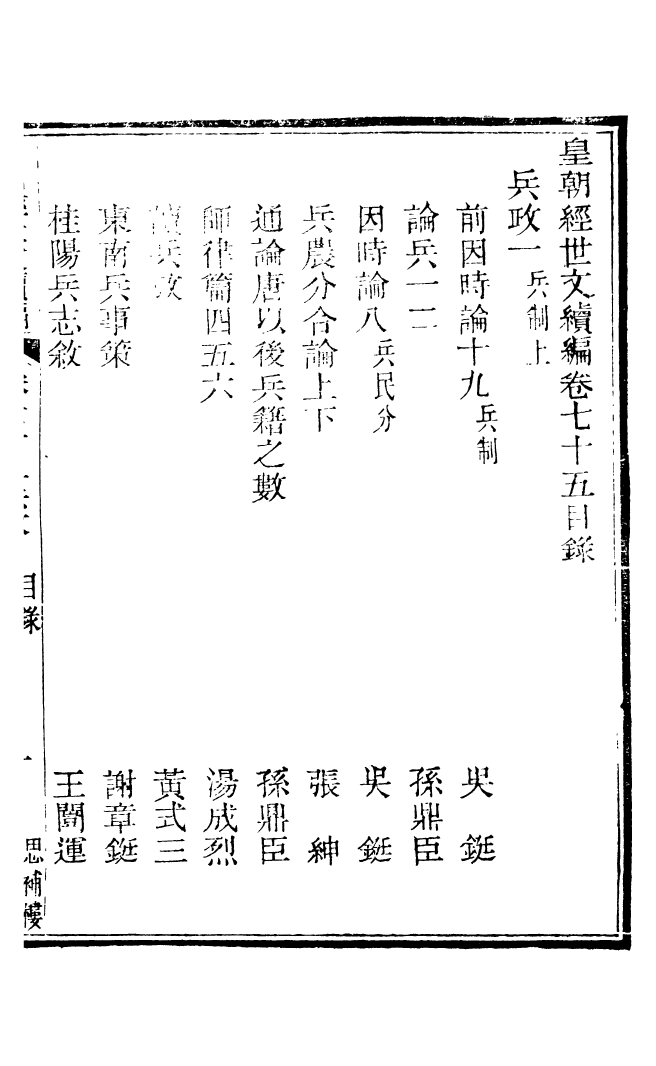 皇朝經世文續編卷七十五目錄
兵政一 兵制上
前因時論十九 兵制 吳 鋋
論兵一二 孫鼎臣
因時論八 兵民分 吳 鋋
兵農分合論上下 張 紳
通論唐以後兵籍之數 孫鼎臣
師律篇四五六 湯成烈
兵攷 黃式三
東南兵事策 謝章鋌
桂陽兵志敘 王闓運
目錄 一 思補樓